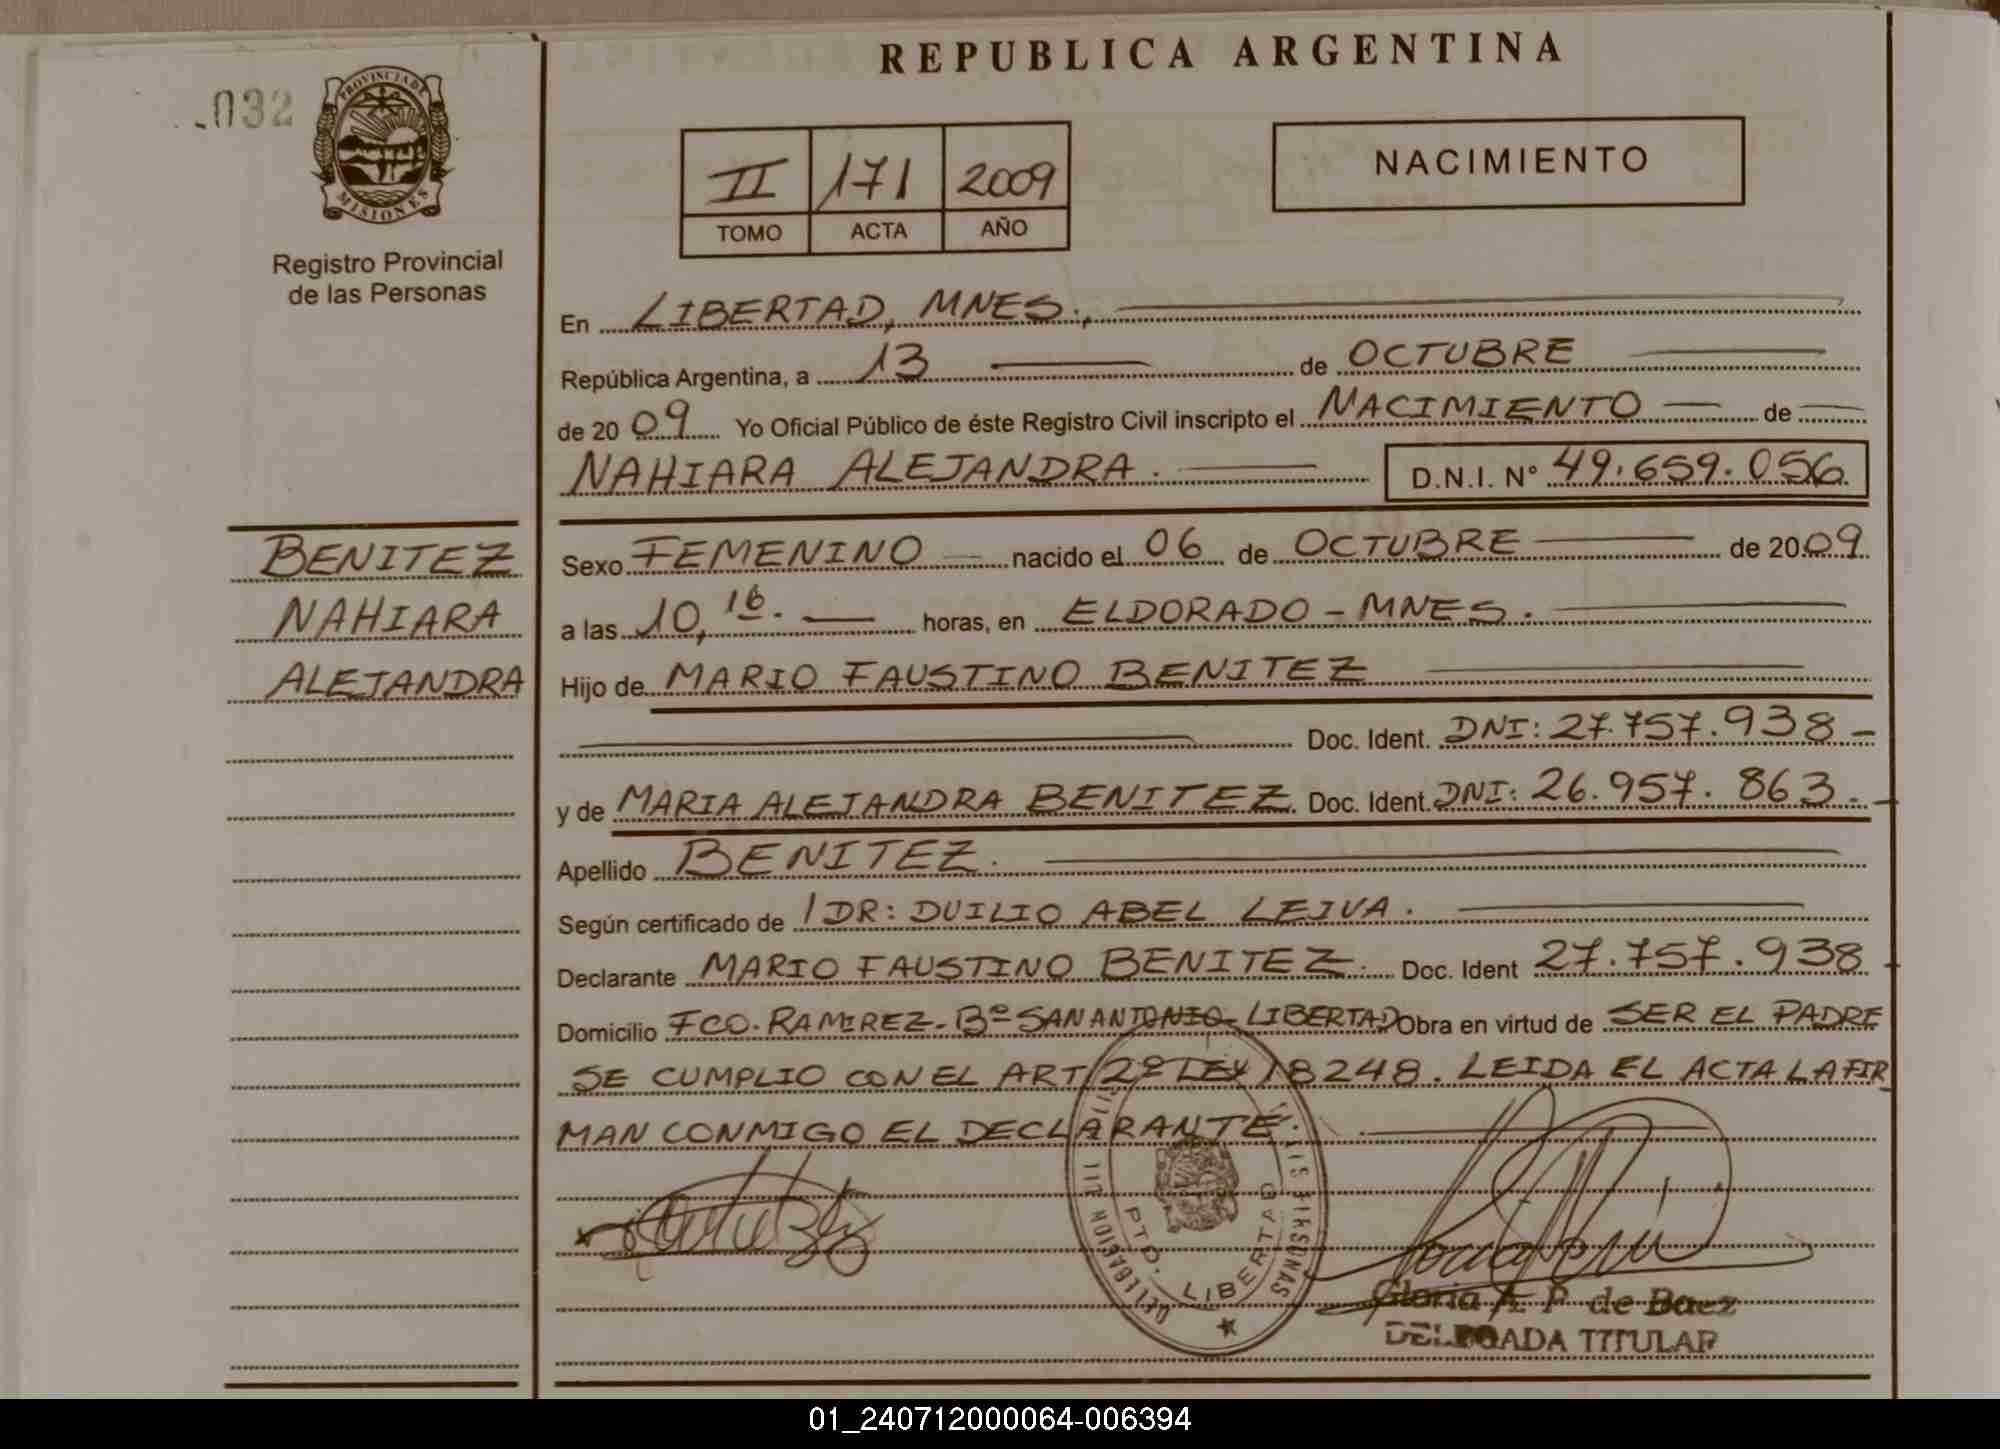 REPUBLICA ARGENTINA
032
PROVINCIA DE
MISIONES
Registro Provincial
de las Personas
II 171 2009
TOMO ACTA AÑO
NACIMIENTO
En LIBERTAD, MNES.,
República Argentina, a 13 de OCTUBRE
de 2009 Yo Oficial Público de éste Registro Civil inscripto el NACIMIENTO de
NAHIARA ALEJANDRA. D.N.I. Nº 49.659.056
BENITEZ
NAHIARA
ALEJANDRA
Sexo FEMENINO nacido el 06 de OCTUBRE de 2009
a las 10,16. horas, en ELDORADO - MNES.
Hijo de MARIO FAUSTINO BENITEZ
Doc. Ident. DNI: 27.757.938 -
y de MARIA ALEJANDRA BENITEZ. Doc. Ident. DNI: 26.957.863. -
Apellido BENITEZ.
Según certificado de / DR: DUILIO ABEL LEIVA.
Declarante MARIO FAUSTINO BENITEZ. Doc. Ident 27.757.938
Domicilio FCO. RAMIREZ - Bº SAN ANTONIO - LIBERTAD Obra en virtud de SER EL PADRE
SE CUMPLIO CON EL ART 2º LEY 18248. LEIDA EL ACTA LA FIR
MAN CONMIGO EL DECLARANTE.
PTO. LIBERTAD
Gloria A. P. de Baez
DELEGADA TITULAR
01_240712000064-006394